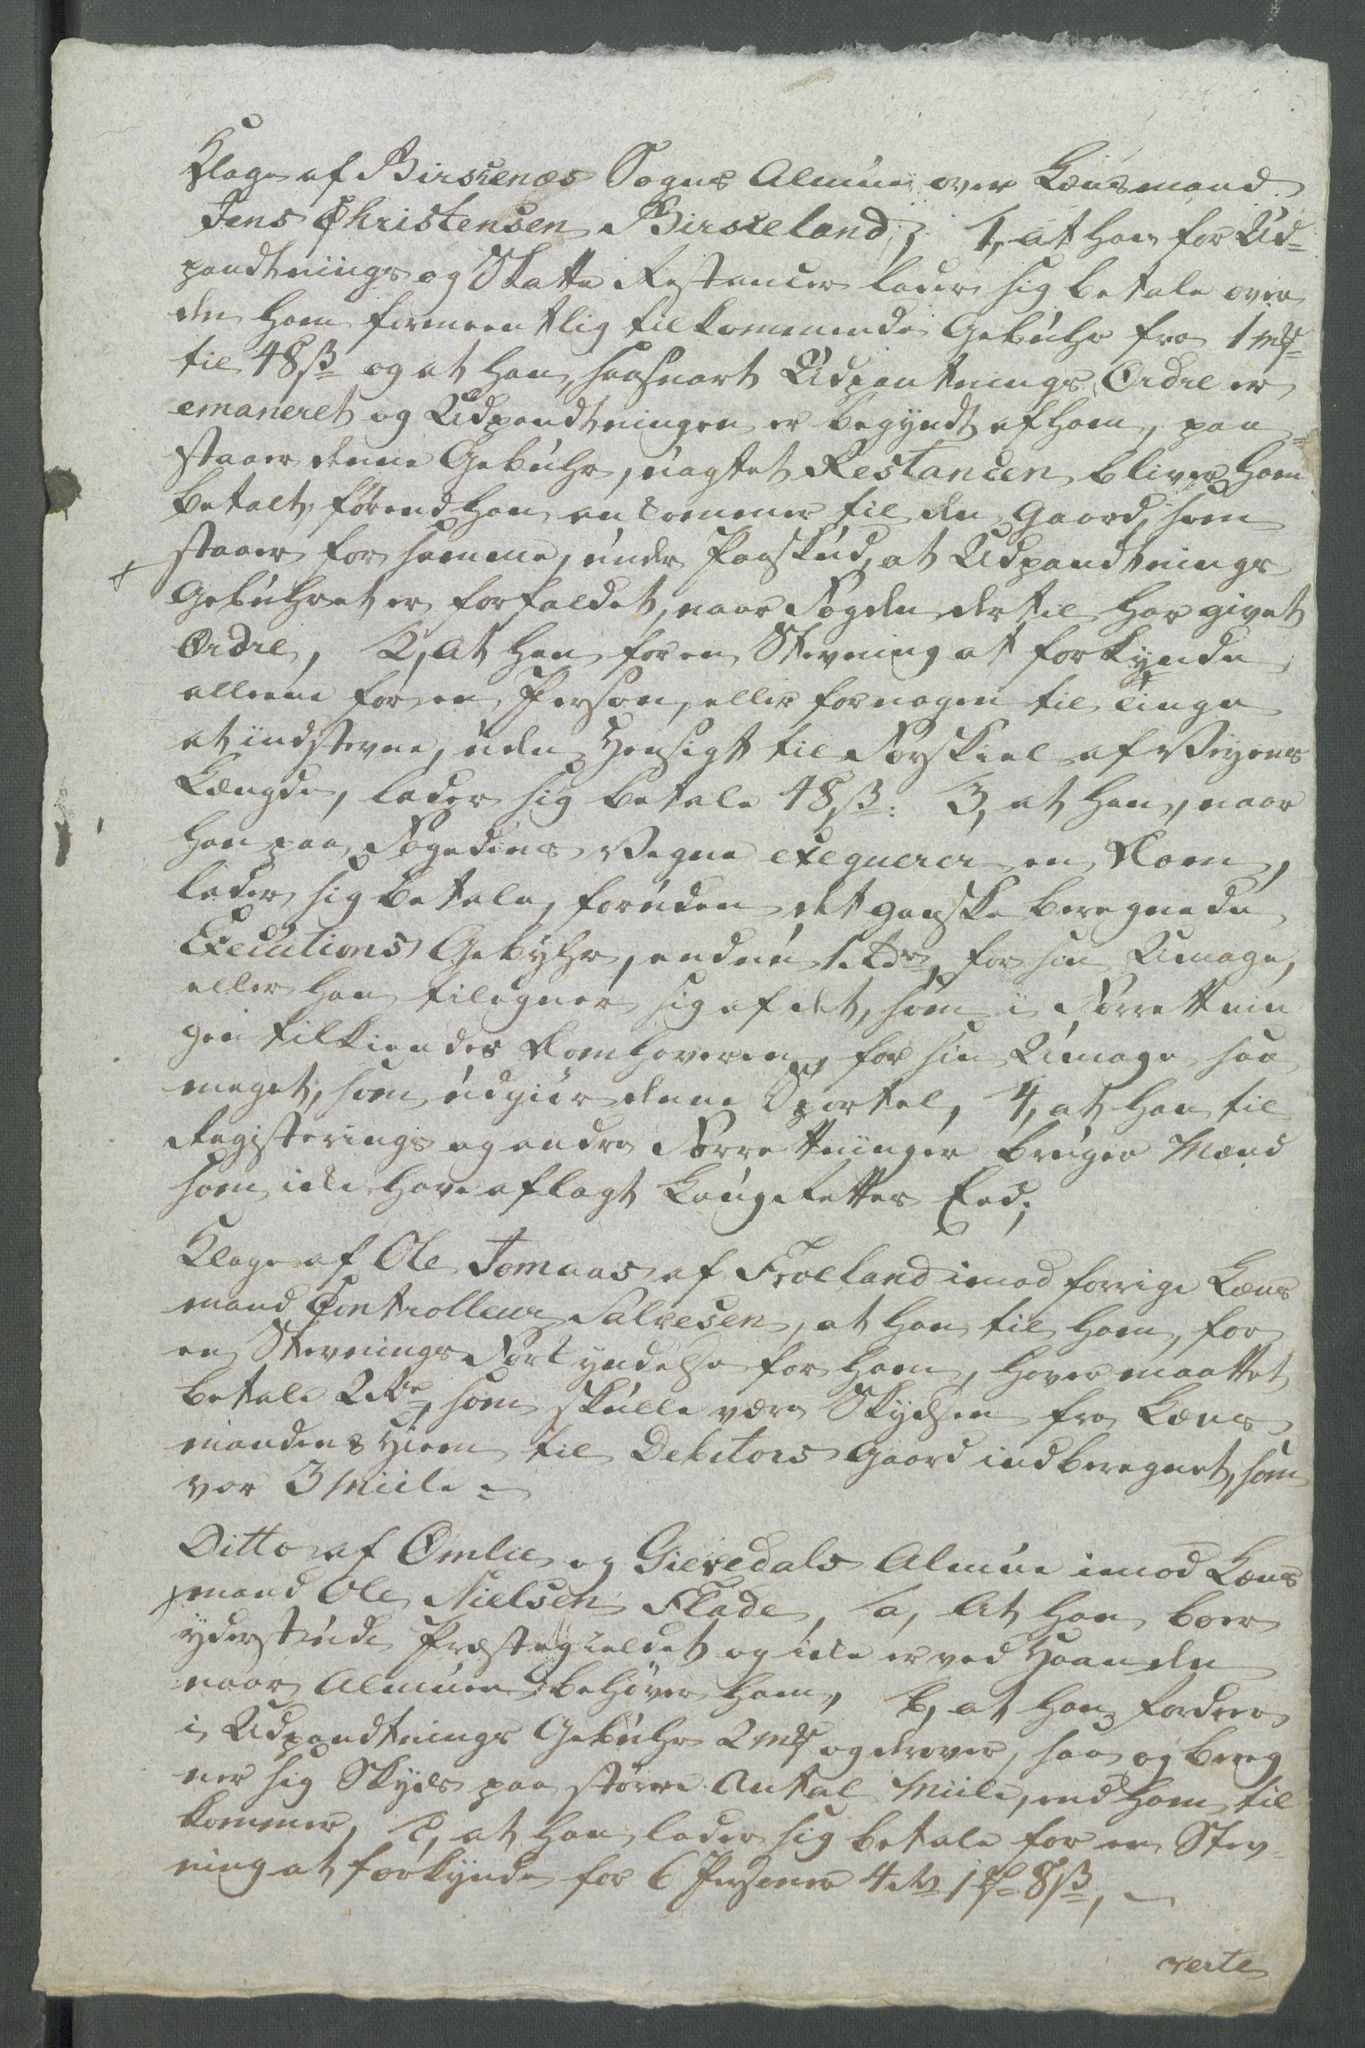 Klage af Birkenæs Sogns Almue over Lænsmand
Jens Christensen Birkeland, 1, at han for Ud-
pandtnings og Skatte Restancer lader sig betale over
den ham formeentlig tilkommende Gebuhr fra 1 mk
til 48 ß og at han, saasnart Udpantnings Ordre er
emaneret og Udpandtningen er begyndt af ham, paa-
staaer denne Gebuhr, uagtet Restancen bliver ham
betalt, förend han ankommer til den Gaard, som
staaer for samme, under Paaskud, at Udpandtnings
Gebuhret er forfaldet, naar Fogden dertil har givet
Ordre, 2, at han for en Stevning at forkynde
alleene for en Person, eller for nogen til Tinge
at indstevne, uden Hensigt til Forskiel af Veyens
Længde, lader sig betale 48 ß. 3, at han, naar
han paa Fogedens Vegne exequerer en Dom,
lader sig betale, foruden det ganske beregnede
Executions Gebyhr, endnu 1 Rdr for sin Umage,
eller han tilegner sig af det, som i Forrettnin
gen tilkiendes Domhaveren, for sin Umage saa
meget, som udgiør denne Sportel, 4, at han til
Registerings og andre Forrettninger bruger Mænd
som icke have aflagt Laugrettes Eed;
Klage af Ole Tomaas af Froeland imod forrige Læns
mand Controlleur Salvesen, at han til ham, for
en Stevnings Forkyndelse for ham, haver maattet
betale 2 Rdr, som skulle være Skydsen fra Læns
mandens Hiem til Debitors Gaard indberegnet, som
var 3 Miile -
Ditto af Omlie og Gievedals Almue imod Læns
mand Ole Nielsen Flade, a, At han boer
yderst i Præstegieldet og icke er ved Haanden
naar Almuen behöver ham, b, at han fordrer
i Udpandtnings Gebuhr 2 mk og derover, saa og bereg
ner sig Skyds paa större Antal Miile, end ham til
kommer, c, at han lader sig betale for en Stev-
ning at forkynde for 6 Personer 4 8 ß,
verte